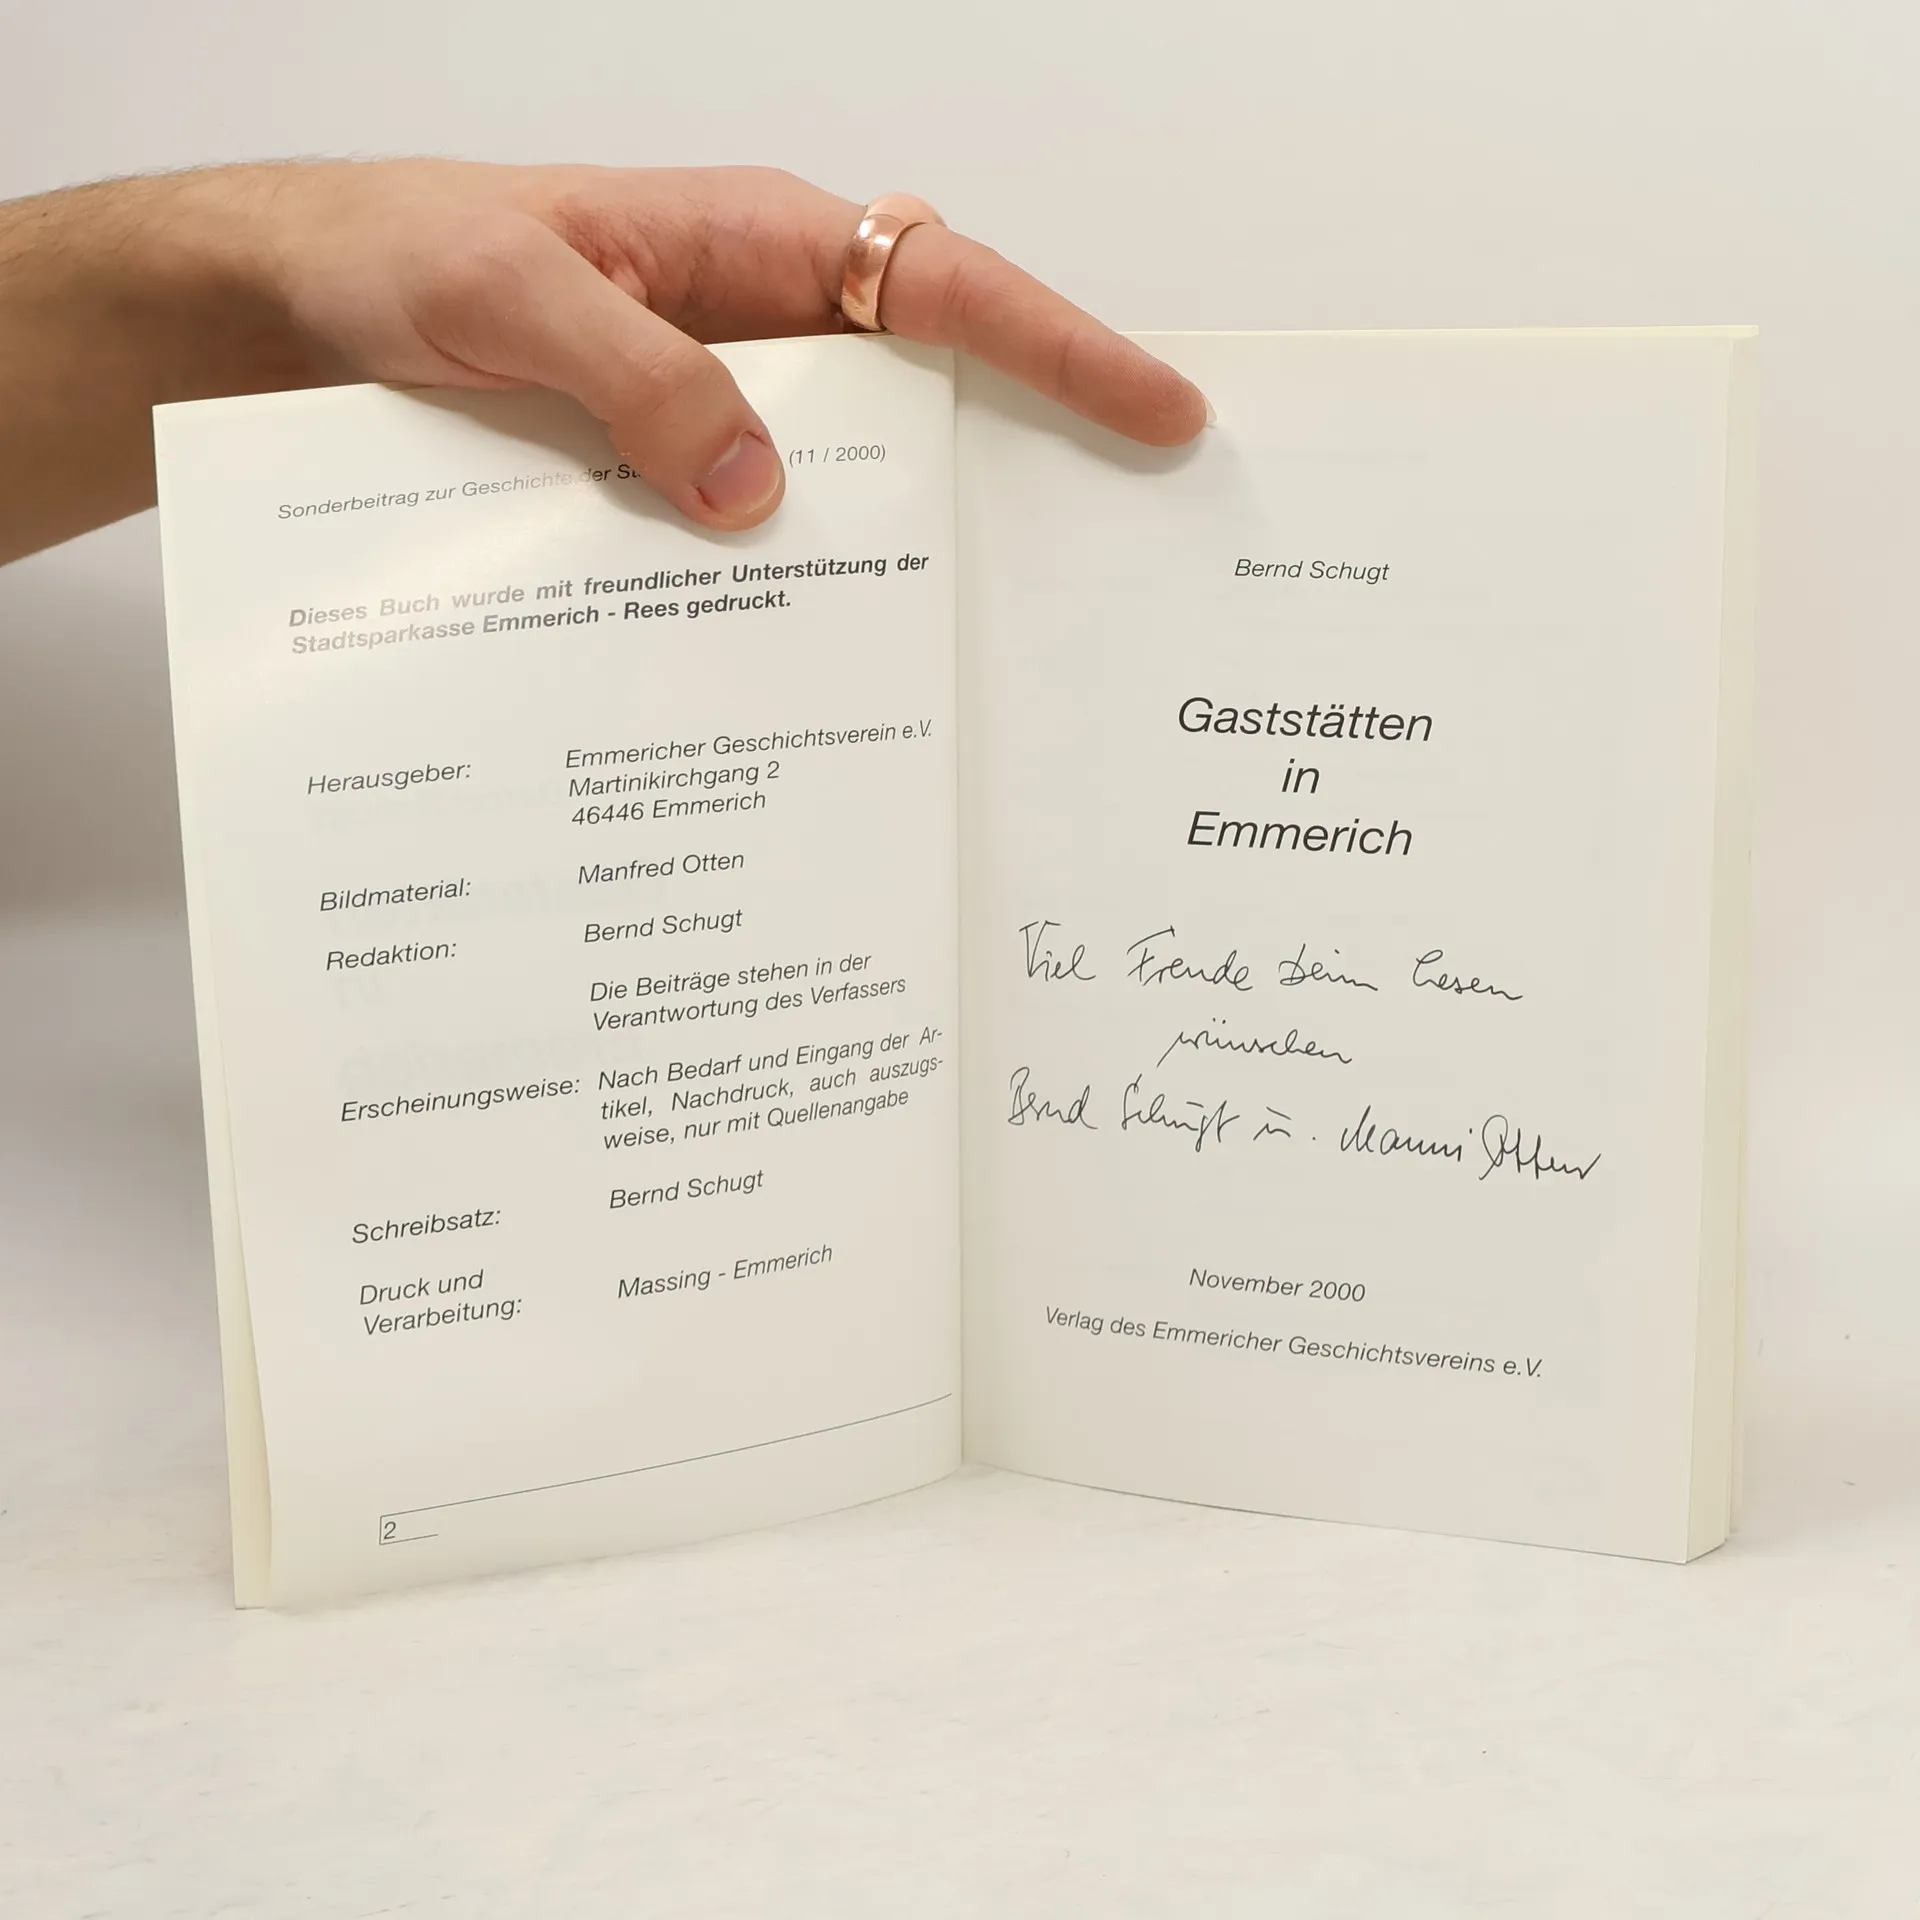 Sonderbeitrag zur Geschichte der (11 / 2000)
Dieses Buch wurde mit freundlicher Unterstützung der
Stadtsparkasse Emmerich - Rees gedruckt.
Herausgeber: Emmericher Geschichtsverein e.V.
Martinikirchgang 2
46446 Emmerich
Bildmaterial: Manfred Otten
Redaktion: Bernd Schugt
Die Beiträge stehen in der
Verantwortung des Verfassers
Erscheinungsweise: Nach Bedarf und Eingang der Ar-
tikel, Nachdruck, auch auszugs-
weise, nur mit Quellenangabe
Schreibsatz: Bernd Schugt
Druck und
Verarbeitung: Massing - Emmerich
2
Bernd Schugt
Gaststätten
in
Emmerich
Viel Freude beim Lesen
wünschen
Bernd Schugt u. Manni Otten
November 2000
Verlag des Emmericher Geschichtsvereins e.V.